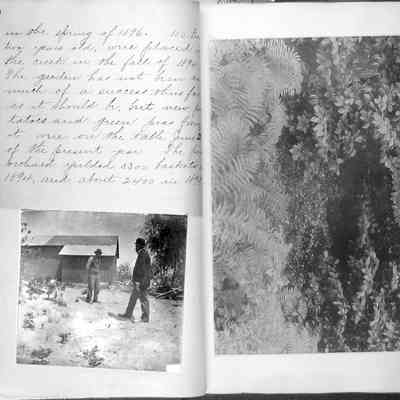 in the spring of 1896.
two years old, were placed
the creek in the fall of 189
The garden has not been
much of a success thus fa
as it should be, but new po
tatoes and green peas from
it were on the table June
of the present year. The
orchard yielded 3300 baskets
1894, and about 2400 in 189